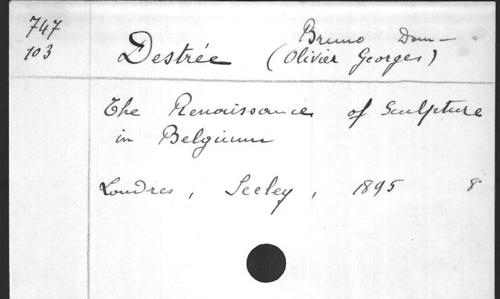 747
103
Bruno Dom —
Destrée (Olivier Georges)
The Renaissance of Sculpture
in Belgium
Londres, Seeley, 1895 8°